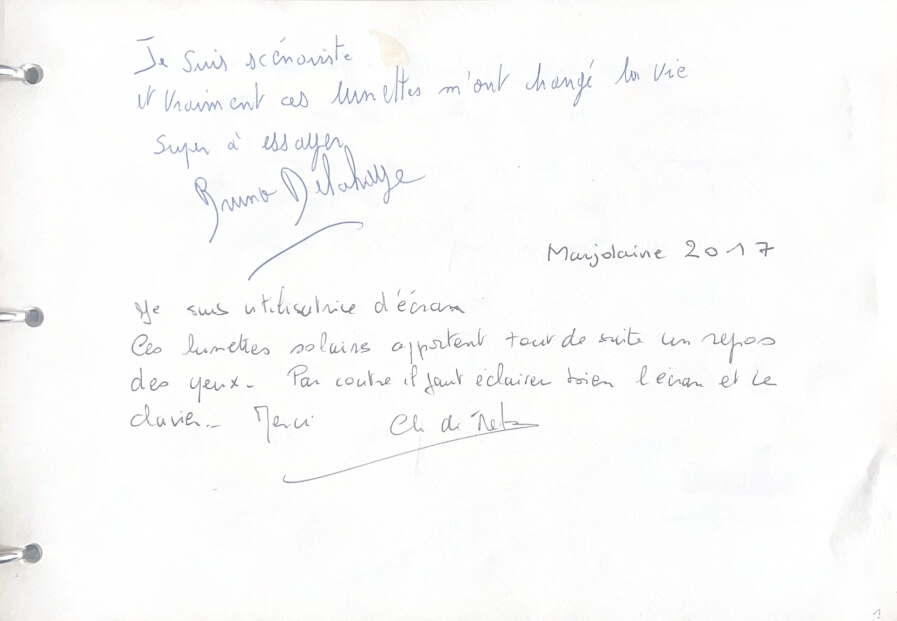 Je suis scénariste
et vraiment ces lunettes m'ont changé la vie
super à essayer
Bruno Delahaye
Marjolaine 2017
Je suis utilisatrice d'écran
Ces lunettes solaires apportent tout de suite un repos
des yeux. Par contre il faut éclairer bien l'écran et le
clavier. Merci Ch de